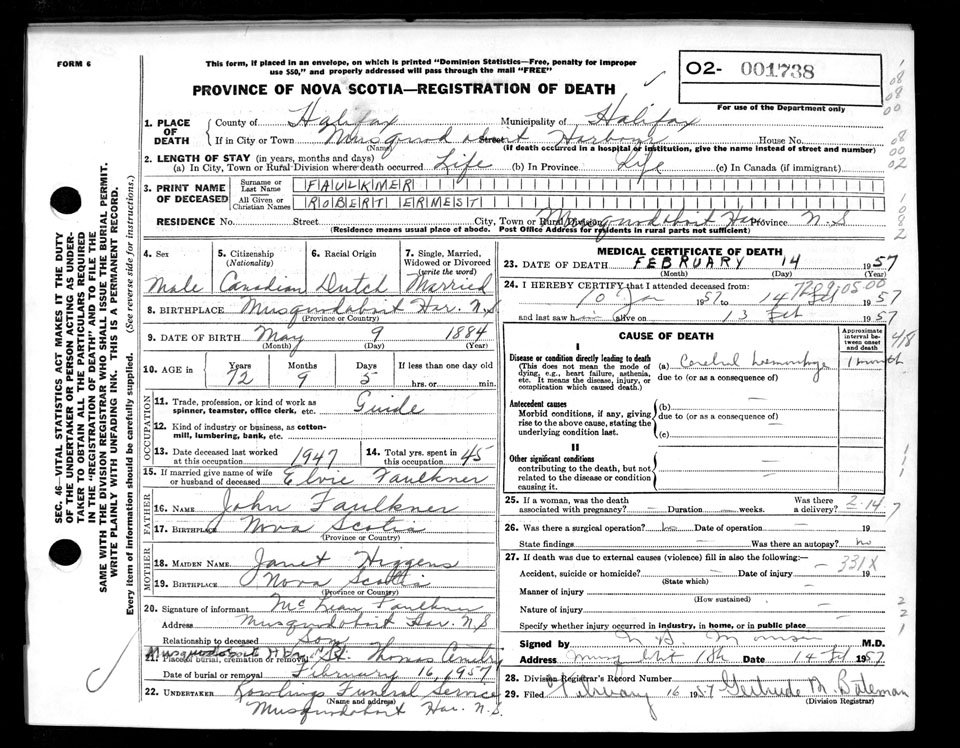 FORM 6
This form, if placed in an envelope, on which is printed "Dominion Statistics—Free, penalty for improper
use $50," and properly addressed will pass through the mail "FREE"
02- 001738
For use of the Department only
PROVINCE OF NOVA SCOTIA—REGISTRATION OF DEATH
1. PLACE OF DEATH County of Halifax Municipality of Halifax
If in City or Town Musquodoboit Harbour Street House No.
(Name) (If death occurred in a hospital or institution, give the name instead of street and number)
2. LENGTH OF STAY (in years, months and days)
(a) In City, Town or Rural Division where death occurred Life (b) In Province Life (c) In Canada (if immigrant)
3. PRINT NAME OF DECEASED Surname or Last Name FAULKNER
All Given or Christian Names ROBERT ERNEST
RESIDENCE No. Street City, Town or Rural Division Musquodoboit Har. Province N.S
(Residence means usual place of abode. Post Office Address for residents in rural parts not sufficient)
4. Sex Male
5. Citizenship (Nationality) Canadian
6. Racial Origin Dutch
7. Single, Married, Widowed or Divorced (write the word) Married
8. BIRTHPLACE Musquodoboit Har. N.S
(Province or Country)
9. DATE OF BIRTH May 9 1884
(Month) (Day) (Year)
10. AGE in Years 72 Months 9 Days 5 If less than one day old hrs. or min.
OCCUPATION
11. Trade, profession, or kind of work as spinner, teamster, office clerk, etc. Guide
12. Kind of industry or business, as cotton-mill, lumbering, bank, etc.
13. Date deceased last worked at this occupation 1947
14. Total yrs. spent in this occupation 45
15. If married give name of wife or husband of deceased Elvie Faulkner
FATHER
16. NAME John Faulkner
17. BIRTHPLACE Nova Scotia
(Province or Country)
MOTHER
18. MAIDEN NAME Janet Higgens
19. BIRTHPLACE Nova Scotia
(Province or Country)
20. Signature of informant McLean Faulkner
Address Musquodoboit Har. N.S
Relationship to deceased Son
21. Place of burial, cremation or removal Musquodoboit Hbr St. Thomas
Date of burial or removal February 16, 1957
22. UNDERTAKER Rowlings Funeral Service
(Name and address)
Musquodoboit Har. N.S.
MEDICAL CERTIFICATE OF DEATH
23. DATE OF DEATH FEBRUARY 14 1957
(Month) (Day) (Year)
24. I HEREBY CERTIFY that I attended deceased from:
10 Jan 1957 to 14 Feb 1957
and last saw him alive on 13 Feb 1957
CAUSE OF DEATH
Approximate interval between onset and death
I
Disease or condition directly leading to death (a) Cerebral hemorrhage 1 month
(This does not mean the mode of dying, e.g., heart failure, asthenia, etc. It means the disease, injury, or complication which caused death.)
due to (or as a consequence of)
Antecedent causes (b)
Morbid conditions, if any, giving rise to the above cause, stating the underlying condition last.
due to (or as a consequence of)
(c)
II
Other significant conditions
contributing to the death, but not related to the disease or condition causing it.
25. If a woman, was the death associated with pregnancy? Duration weeks. Was there a delivery?
2-14-7
26. Was there a surgical operation? no Date of operation 19
State findings Was there an autopsy? no
27. If death was due to external causes (violence) fill in also the following:—
331X
Accident, suicide or homicide? Date of injury 19
(State which)
Manner of injury
(How sustained)
Nature of injury
Specify whether injury occurred in industry, in home, or in public place
Signed by M.D.
Address Date 14 Feb 1957
28. Division Registrar's Record Number
29. Filed February 16 1957 Gertrude M. Bateman
(Division Registrar)
SEC. 46—VITAL STATISTICS ACT MAKES IT THE DUTY
OF THE UNDERTAKER OR PERSON ACTING AS UNDER-
TAKER TO OBTAIN ALL THE PARTICULARS REQUIRED
IN THE "REGISTRATION OF DEATH" AND TO FILE THE
SAME WITH THE DIVISION REGISTRAR WHO SHALL ISSUE THE BURIAL PERMIT.
WRITE PLAINLY WITH UNFADING INK. THIS IS A PERMANENT RECORD.
Every item of information should be carefully supplied. (See reverse side for instructions.)